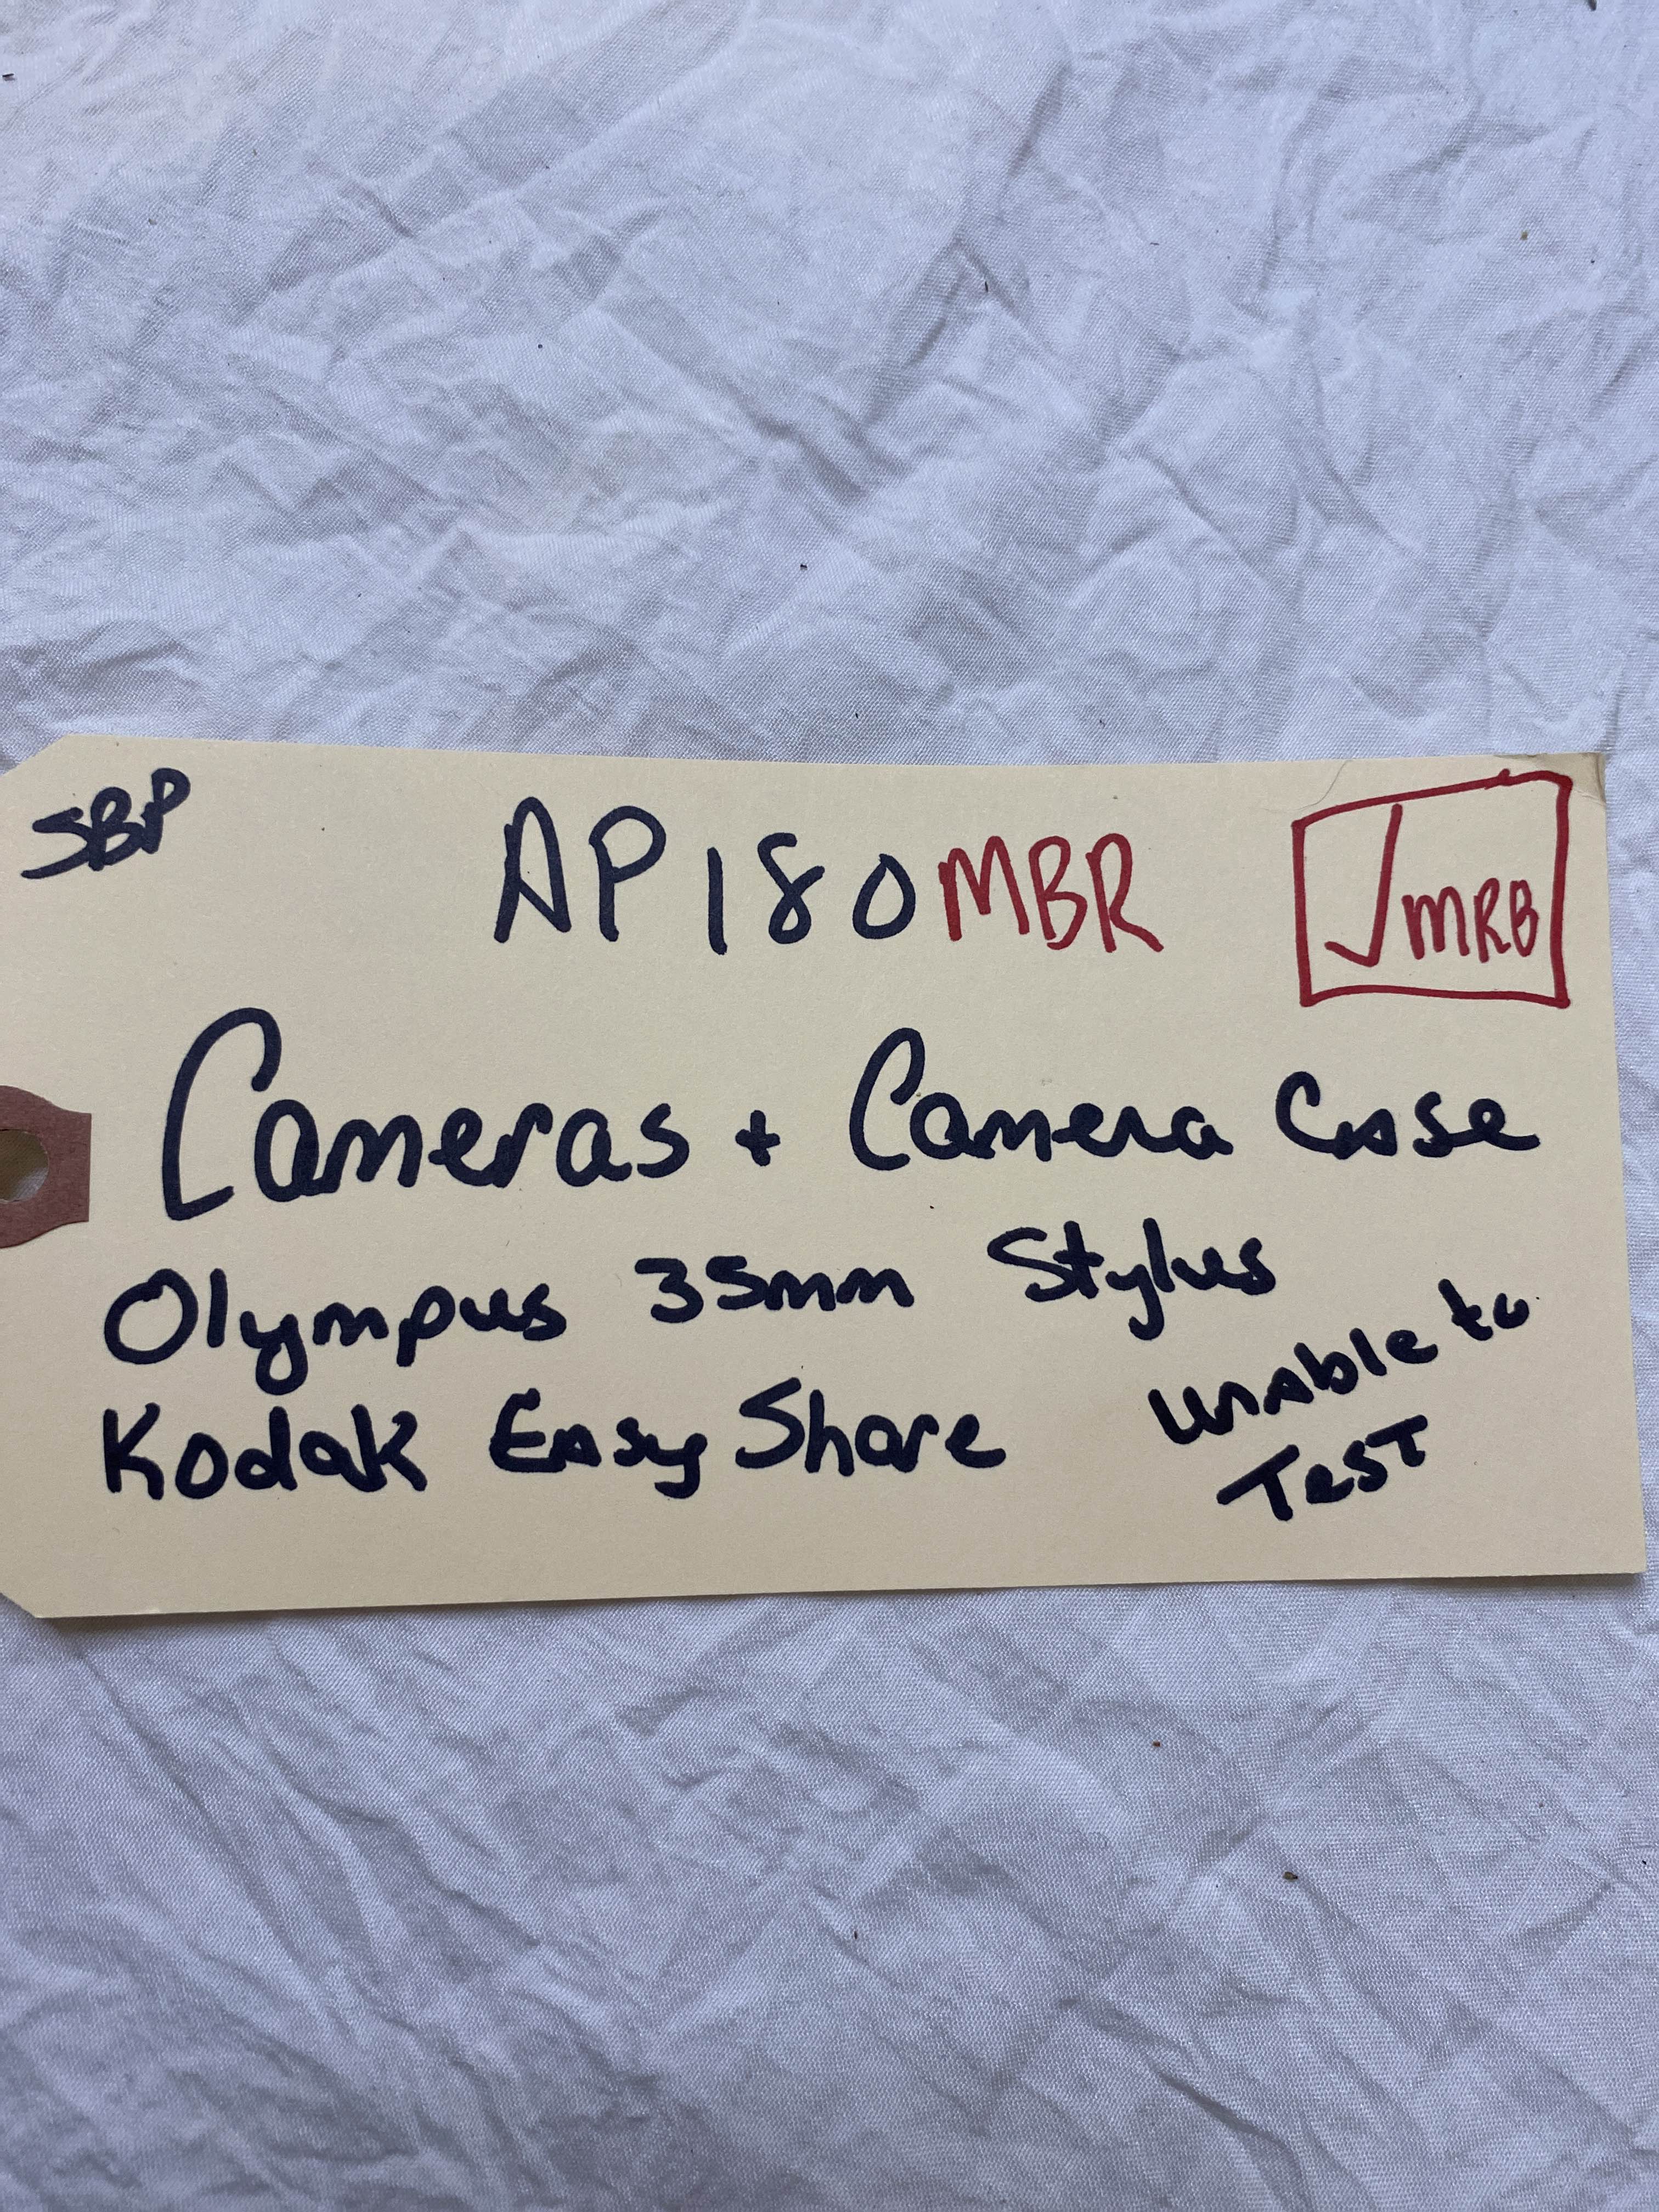 SBP
AP180MBR
✓MRB
Cameras + Camera Case
Olympus 35mm Stylus
Kodak EasyShare
Unable to
Test